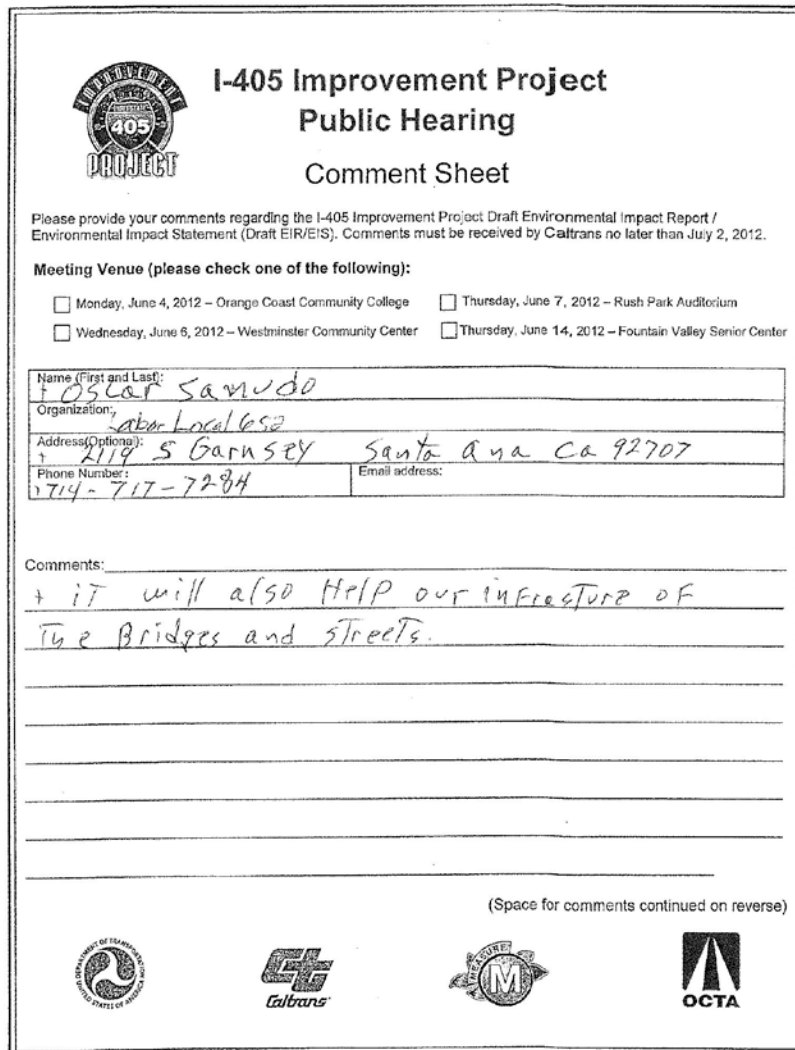 IMPROVEMENT
INTERSTATE
405
PROJECT
I-405 Improvement Project
Public Hearing
Comment Sheet
Please provide your comments regarding the I-405 Improvement Project Draft Environmental Impact Report /
Environmental Impact Statement (Draft EIR/EIS). Comments must be received by Caltrans no later than July 2, 2012.
Meeting Venue (please check one of the following):
Monday, June 4, 2012 – Orange Coast Community College
Thursday, June 7, 2012 – Rush Park Auditorium
Wednesday, June 6, 2012 – Westminster Community Center
Thursday, June 14, 2012 – Fountain Valley Senior Center
Name (First and Last):
+ Oscar Samudo
Organization:
Labor Local 652
Address(Optional):
+ 2119 S Garnsey Santa ana Ca 92707
Phone Number:
714-717-7284
Email address:
Comments:
+ iT will also Help our infrasture of
The Bridges and streets.
(Space for comments continued on reverse)
DEPARTMENT OF TRANSPORTATION
UNITED STATES OF AMERICA
Caltrans
MEASURE
M
OCTA